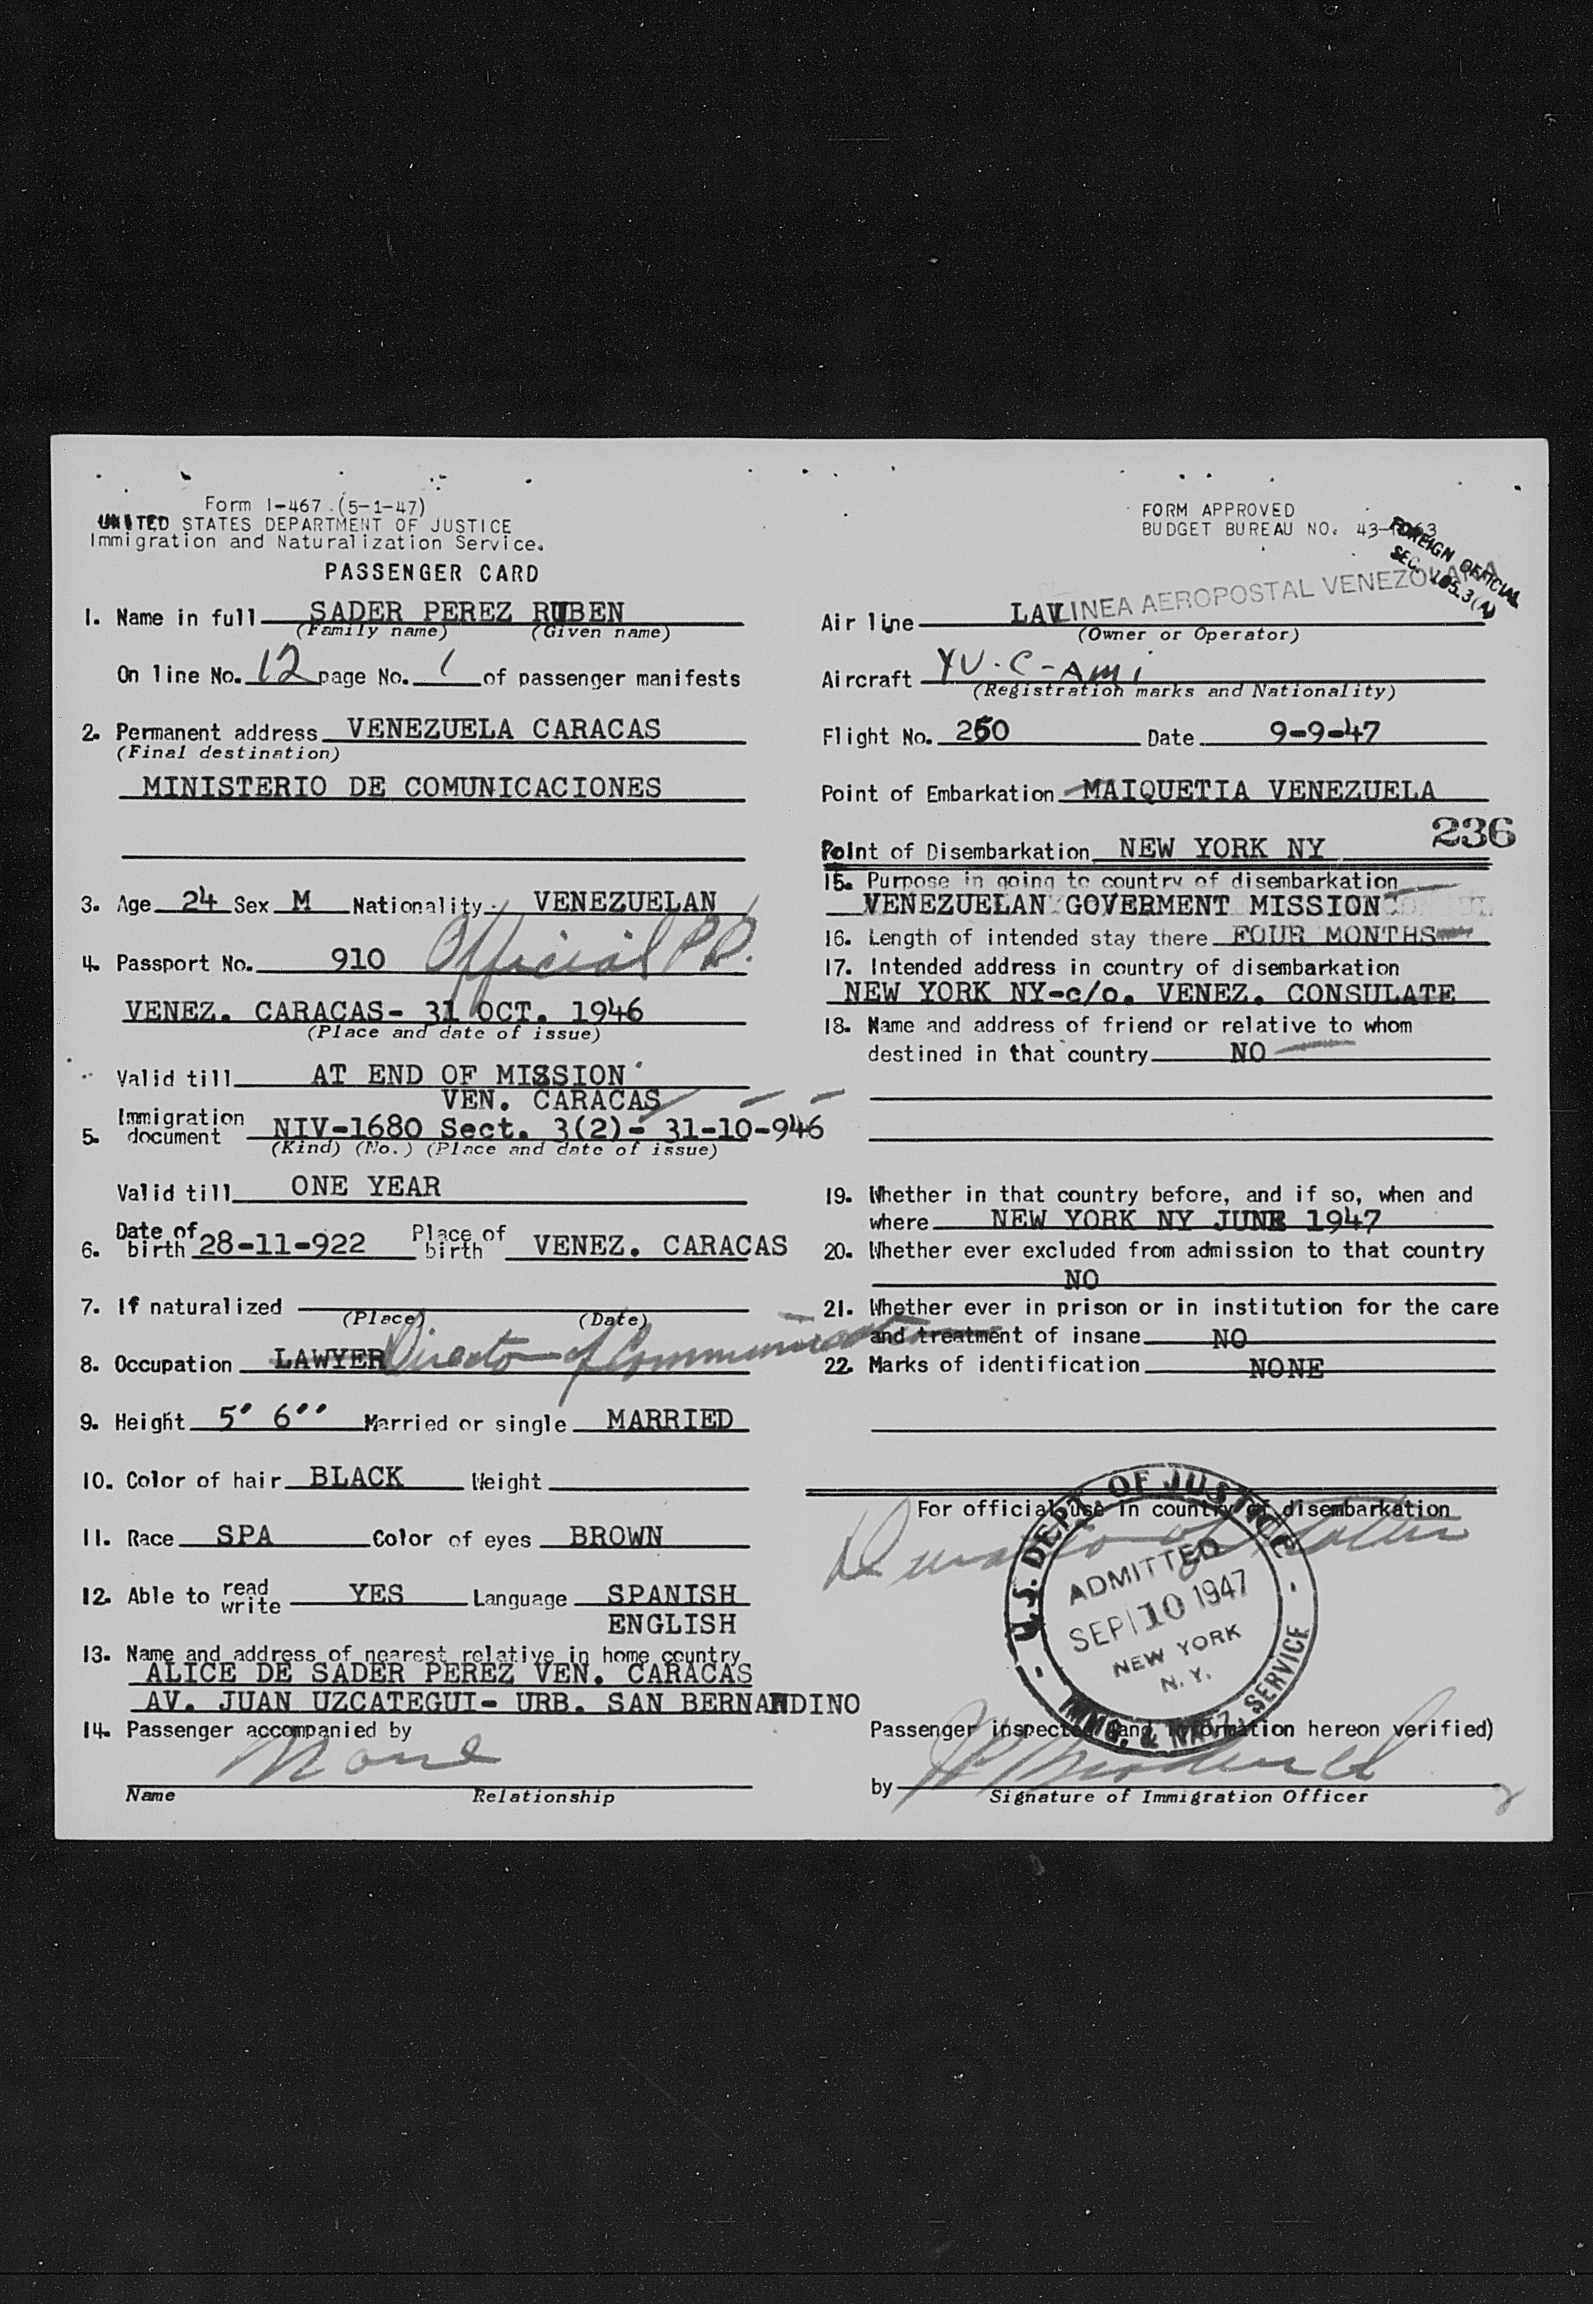 Form I-467 (5-1-47)
UNITED STATES DEPARTMENT OF JUSTICE
Immigration and Naturalization Service.
PASSENGER CARD
1. Name in full SADER PEREZ RUBEN
(Family name) (Given name)
On line No. 12 page No. 1 of passenger manifests
2. Permanent address VENEZUELA CARACAS
(Final destination)
MINISTERIO DE COMUNICACIONES
3. Age 24 Sex M Nationality VENEZUELAN
4. Passport No. 910 Official P.P.
VENEZ. CARACAS- 31 OCT. 1946
(Place and date of issue)
Valid till AT END OF MISSION
VEN. CARACAS
5. Immigration document NIV-1680 Sect. 3(2)- 31-10-946
(Kind) (No.) (Place and date of issue)
Valid till ONE YEAR
6. Date of birth 28-11-922 Place of birth VENEZ. CARACAS
7. If naturalized
(Place) (Date)
8. Occupation LAWYER Director of Communication
9. Height 5' 6'' Married or single MARRIED
10. Color of hair BLACK Weight
11. Race SPA Color of eyes BROWN
12. Able to read write YES Language SPANISH
ENGLISH
13. Name and address of nearest relative in home country
ALICE DE SADER PEREZ VEN. CARACAS
AV. JUAN UZCATEGUI- URB. SAN BERNARDINO
14. Passenger accompanied by
None
Name Relationship
FORM APPROVED
BUDGET BUREAU NO. 43-
FOREIGN OFFICIAL
SEC. 105.3(A)
Air line LAV LINEA AEROPOSTAL VENEZOLANA
(Owner or Operator)
Aircraft YV-C-AMI
(Registration marks and Nationality)
Flight No. 250 Date 9-9-47
Point of Embarkation MAIQUETIA VENEZUELA
236
Point of Disembarkation NEW YORK NY
15. Purpose in going to country of disembarkation
VENEZUELAN GOVERMENT MISSION
16. Length of intended stay there FOUR MONTHS
17. Intended address in country of disembarkation
NEW YORK NY-c/o. VENEZ. CONSULATE
18. Name and address of friend or relative to whom
destined in that country NO
19. Whether in that country before, and if so, when and
where NEW YORK NY JUNE 1947
20. Whether ever excluded from admission to that country
NO
21. Whether ever in prison or in institution for the care
and treatment of insane NO
22. Marks of identification NONE
For official use in country of disembarkation
Duration of Status
U.S. DEPT OF JUSTICE
ADMITTED
SEP 10 1947
NEW YORK
N.Y.
IMMG. & NATZ. SERVICE
Passenger inspected (and information hereon verified)
by
Signature of Immigration Officer